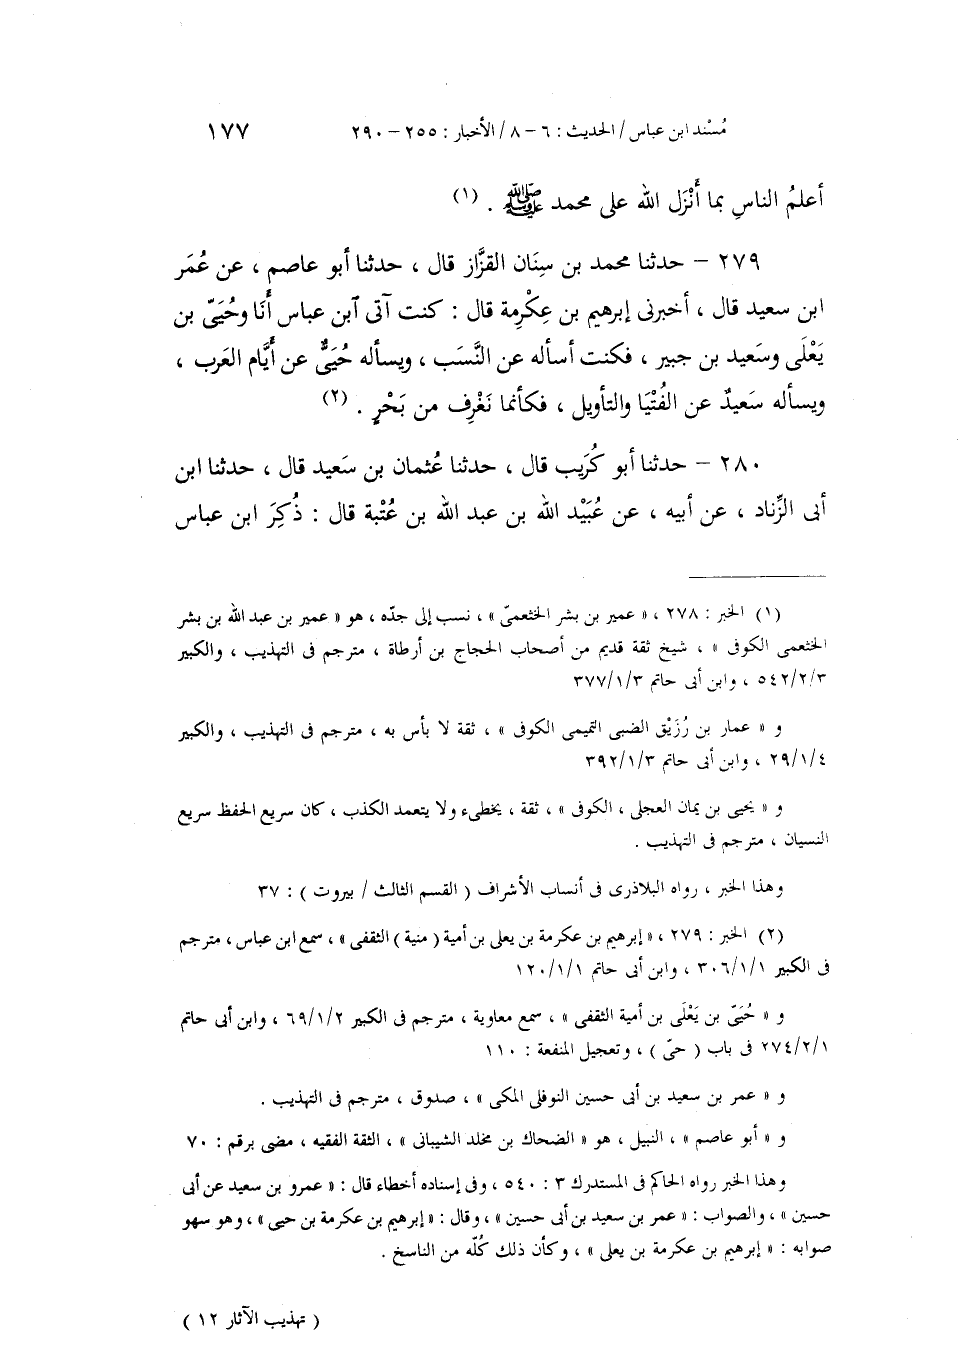 مُسْند ابن عباس / الحديث : ٦ – ٨ / الأخبار : ٢٥٥ – ٢٩٠ ١٧٧
أعلمُ الناسِ بما أُنْزِل الله على محمد ﷺ . (١)
٢٧٩ – حدثنا محمد بن سِنَان القزَّاز قال ، حدثنا أبو عاصم ، عن عُمَر
ابن سعيد قال ، أخبرنى إبرهيم بن عِكْرِمة قال : كنت آتى ٱبن عباس أَنَا وحُيَىّ بن
يَعْلَى وسَعيد بن جبير ، فكنت أسأله عن النَّسَب ، ويسأله حُيَىٌّ عن أَيَّام العَرب ،
ويسأله سَعيدٌ عن الفُتْيَا والتأويل ، فكأنما نَغْرِف من بَحْرٍ . (٢)
٢٨٠ – حدثنا أبو كُرَيب قال ، حدثنا عُثمان بن سَعيد قال ، حدثنا ابن
أبى الزِّناد ، عن أبيه ، عن عُبَيْد الله بن عبد الله بن عُتْبة قال : ذُكِرَ ابن عباس
(١) الخبر : ٢٧٨ ، « عمير بن بشر الخثعمىّ » ، نسب إلى جدّه ، هو « عمير بن عبد الله بن بشر
الخثعمى الكوفى » ، شيخ ثقة قديم من أصحاب الحجاج بن أرطاة ، مترجم فى التهذيب ، والكبير
٣/٢/٥٤٢ ، وابن أبى حاتم ٣/١/٣٧٧
و « عمار بن رُزَيْق الضبى التميمى الكوفى » ، ثقة لا بأس به ، مترجم فى التهذيب ، والكبير
٤/١/٢٩ ، وابن أبى حاتم ٣/١/٣٩٢
و « يحيى بن يمان العجلى ، الكوفى » ، ثقة ، يخطىء ولا يتعمد الكذب ، كان سريع الحفظ سريع
النسيان ، مترجم فى التهذيب .
وهذا الخبر ، رواه البلاذرى فى أنساب الأشراف ( القسم الثالث / بيروت ) : ٣٧
(٢) الخبر : ٢٧٩ ، « إبرهيم بن عكرمة بن يعلى بن أمية ( منية ) الثقفى » ، سمع ابن عباس ، مترجم
فى الكبير ١/١/٣٠٦ ، وابن أبى حاتم ١/١/١٢٠
و « حُيَىّ بن يَعْلَى بن أمية الثقفى » ، سمع معاوية ، مترجم فى الكبير ٢/١/٦٩ ، وابن أبى حاتم
١/٢/٢٧٤ فى باب ( حىّ ) ، وتعجيل المنفعة : ١١٠
و « عمر بن سعيد بن أبى حسين النوفلى المكى » ، صدوق ، مترجم فى التهذيب .
و « أبو عاصم » ، النبيل ، هو « الضحاك بن مخلد الشيبانى » ، الثقة الفقيه ، مضى برقم : ٧٠
وهذا الخبر رواه الحاكم فى المستدرك ٣ : ٥٤٠ ، وفى إسناده أخطاء قال : « عمرو بن سعيد عن أبى
حسين » ، والصواب : « عمر بن سعيد بن أبى حسين » ، وقال : « إبرهيم بن عكرمة بن حيى » ، وهو سهو
صوابه : « إبرهيم بن عكرمة بن يعلى » ، وكأن ذلك كُلّه من الناسخ .
( تهذيب الآثار ١٢ )